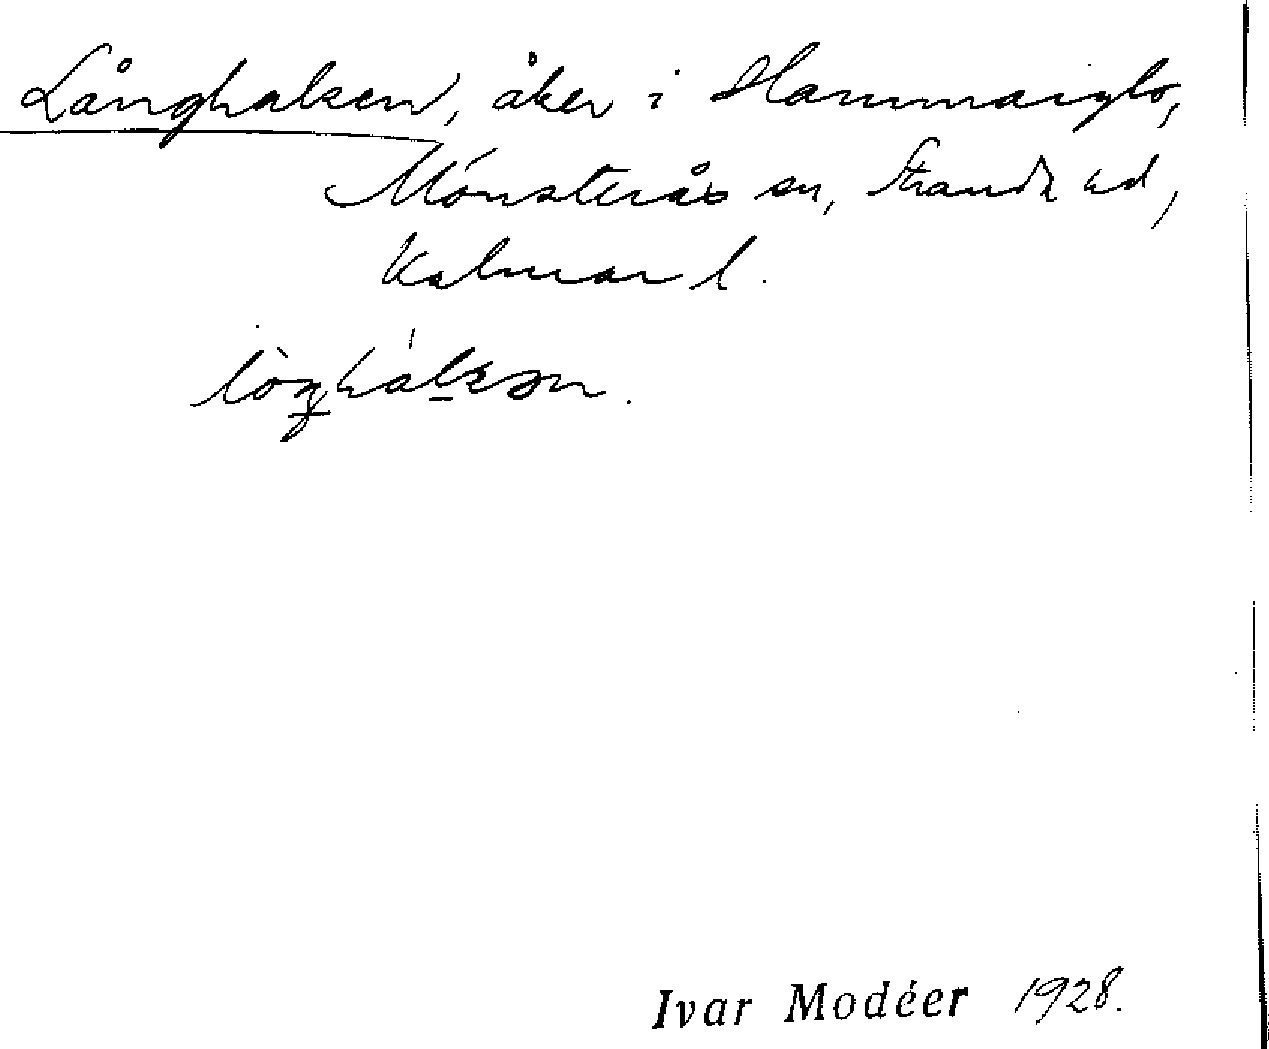 Långhalsen, åker i Hammarsglo,
Mönsterås sn, Stranda hd,
Kalmar l.
Ivar Modéer 1928.